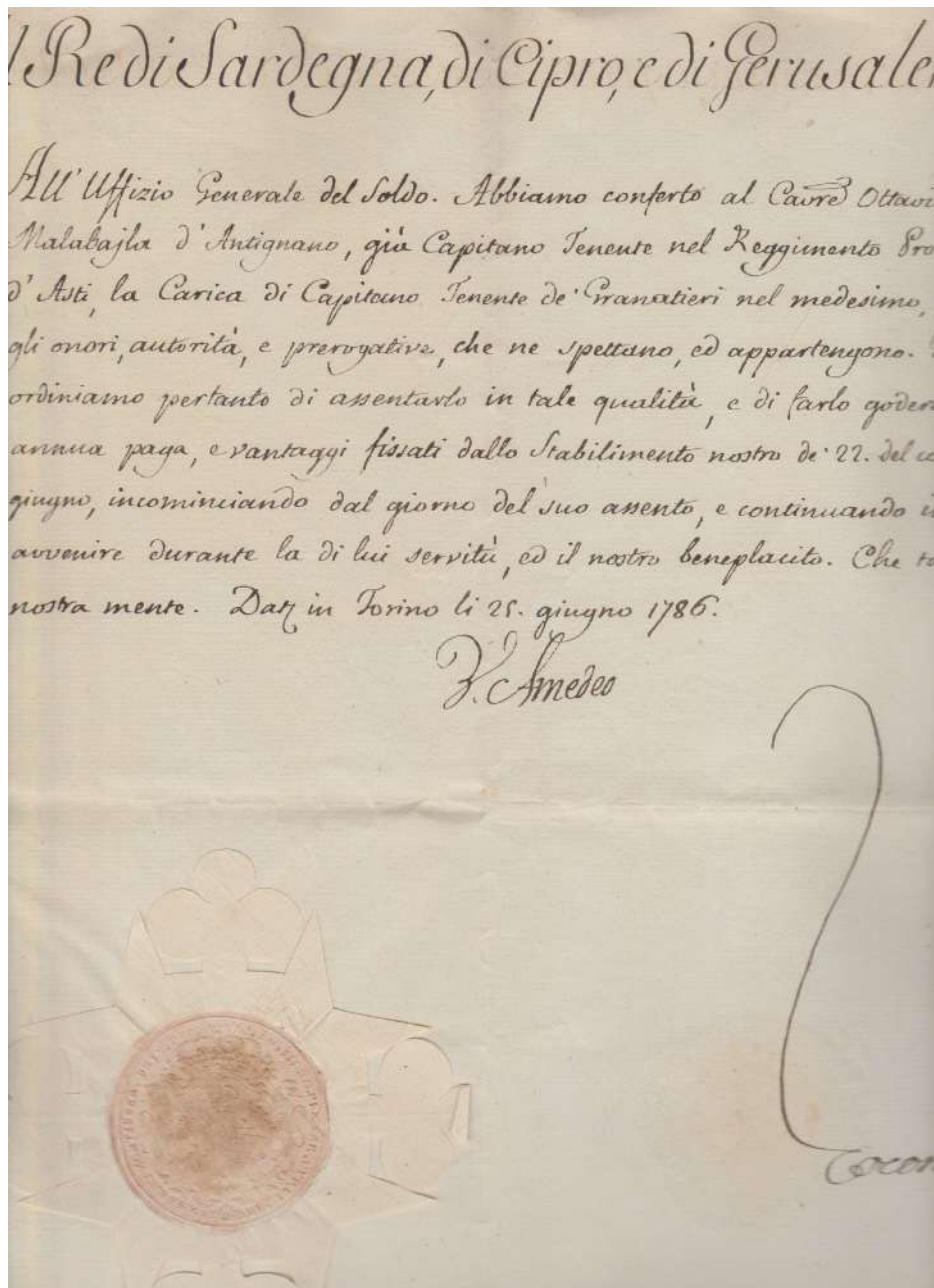 l Re di Sardegna, di Cipro, e di Gerusale
All' Uffizio Generale del Soldo. Abbiamo conferto al Cavre Ottavi
Malabajla d'Antignano, già Capitano Tenente nel Reggimento Pro
d'Asti, la Carica di Capitano Tenente de' Granatieri nel medesimo,
gli onori, autorità, e prerogative, che ne spettano, ed appartengono.
ordiniamo pertanto di assentarlo in tale qualità, e di farlo goder
annua paga, e vantaggi fissati dallo Stabilimento nostro de' 22. del
giugno, incominciando dal giorno del suo assento, e continuando
avvenire durante la di lui servitù, ed il nostro beneplacito. Che
nostra mente. Dat in Torino li 25. giugno 1786.
V. Amedeo
Cocon